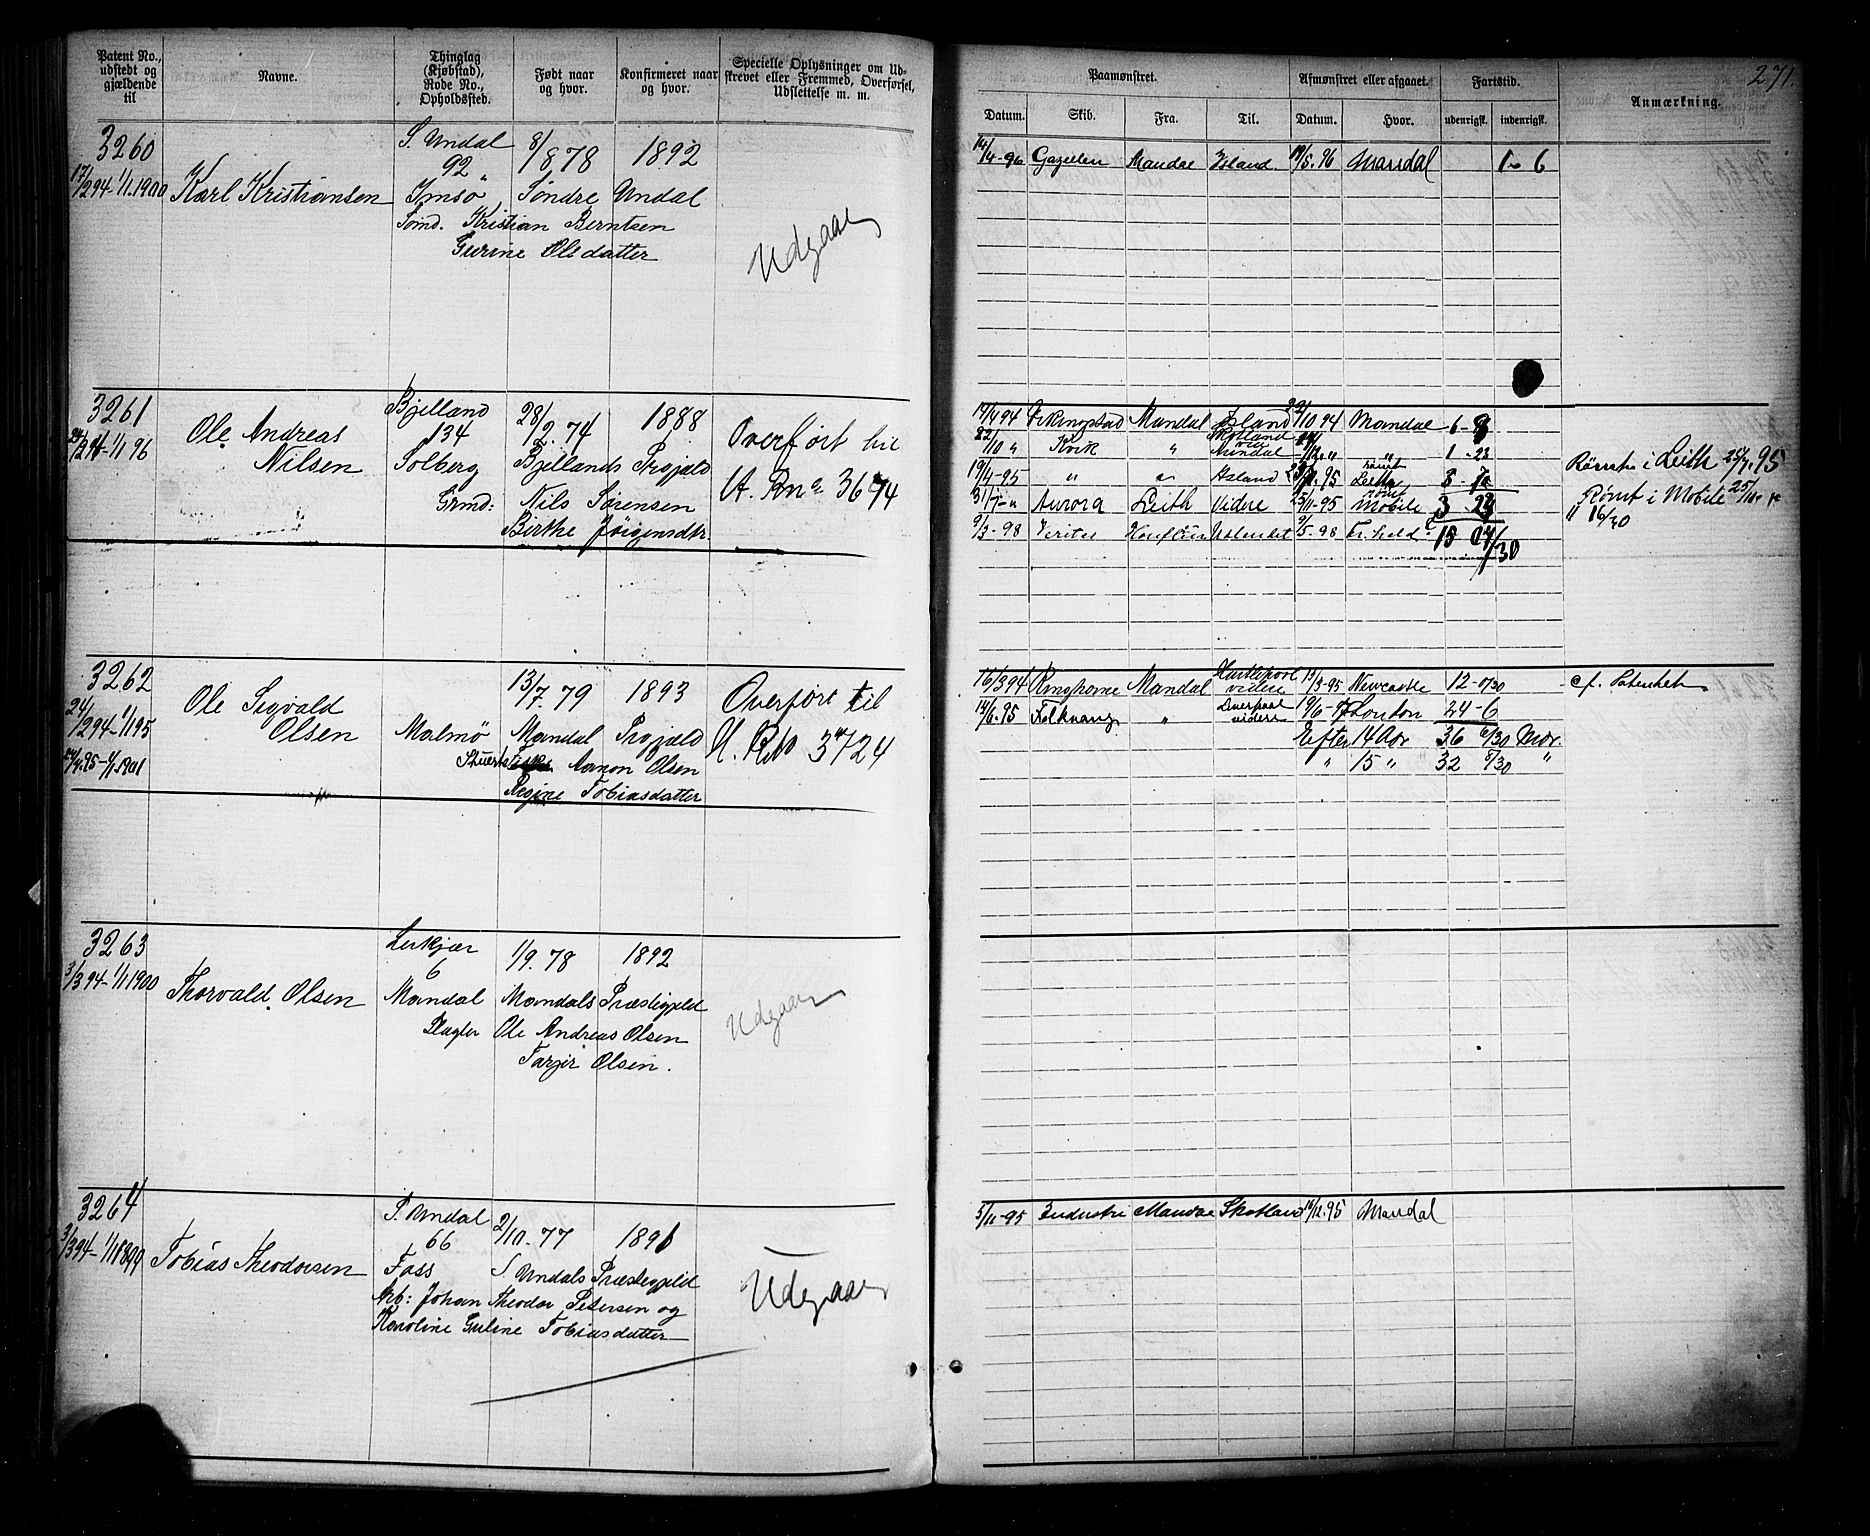 Patent No., udstedt og gjældende til
Navne.
Thinglag (Kjøbstad), Rode No., Opholdssted.
Født naar og hvor.
Konfirmeret naar og hvor.
Specielle Oplysninger om Udskrevet eller Fremmed, Overførsel, Udslettelse m. m.
Paamønstret.
Afmønstret eller afgaaet.
Fartstid.
Anmærkning.
271.
Datum. Skib. Fra. Til. Datum. Hvor. udenrigsk. indenrigsk.
3260 S. Undal 8/8 78 1892
92
17/2 94-1/1 1900 Karl Kristiansen Imsø Søndre Undal
Sømd. Kristian Berntsen
Gurine Olsdatter
Udgaar
14/4-96 Gazellen Mandal Island. 19/5 96 Mandal 1 - 6
3261 Bjelland 28/9. 74 1888 Overført til
Ole Andreas 134
24/2 94-1/1 96 Nilsen Solberg Bjellands Prgjæld A. Rno 3674
Grmd: Nils Sørensen
Birthe Jørgensdtr
17/4 94 Mandal Island 10 94 Mandal 6 - 8
22/10 " Kvik " Skotland via Arendal " 1 - 23
19/4-95 " " Island 95 rømt Leith
31/7 - " Aurora Leith Videre 25/11-95 rømt Mobile 3 - 23
9/3-98 /5-98 15
Rømte i Leith 25/7. 95
Rømt i Mobile 25/11
" 16/30
3262 13/7. 79 1893 Overført til
Ole Sigvald
24/1 2 94 1/1 95 Olsen Malmø Mandal Prgjæld A. Rno 3724
Stuert Aanon Olsen
Regine Tobiasdatter
16/3 94 Ringhorne Mandal Hartlepool videre 13/3-95 Newcastle 12 - 0/30 cf. Patentet
14/6. 95 Folkvang " Liverpool videre 19/6 - London 24 - 6
Efter 14 Aar 36 6/30 Mdr.
" 15 " 32 "
3263 Lerkjær 1/9. 78 1892
6
3/3 94-1/1 1900 Thorvald Olsen Mandal Mandals Præstegjeld
Ole Andreas Olsen
Olsen.
Udgaar
3264 S. Undal 2/10. 77 1891
66
3/3 94-1/1 1899 Tobias Theodorsen Foss S Undals Præstegjeld
Arb: Johan Theodor Petersen og
Karoline Guline Tobiasdatter
Udgaar
5/11-95 Industri Mandal Skotland 14/12. 95 Mandal